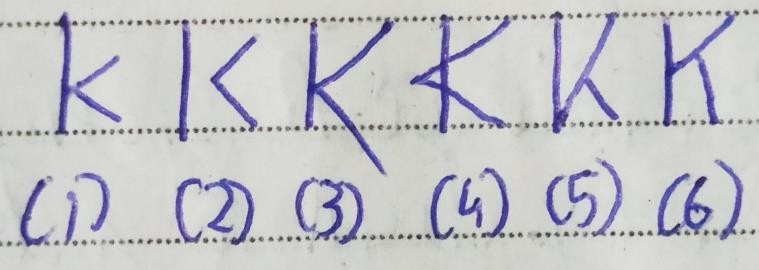 k K K K K K
(1) (2) (3) (4) (5) (6)